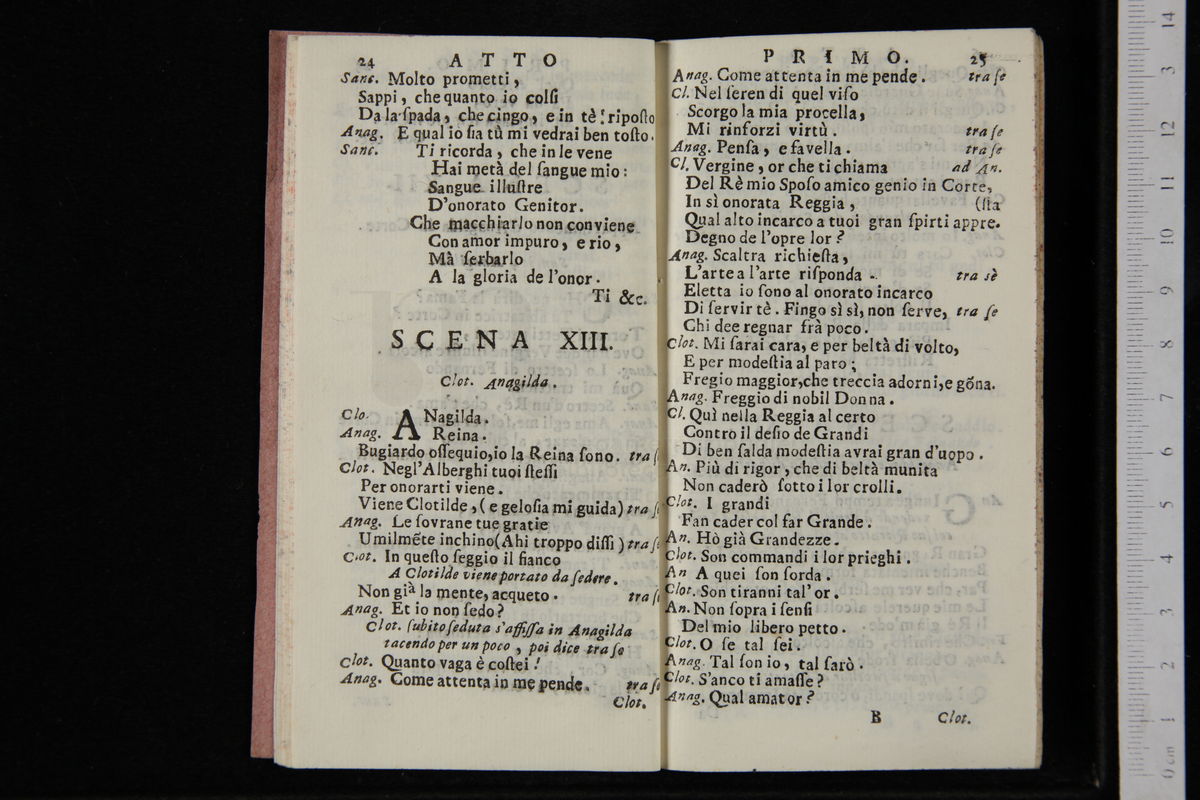 24 ATTO
Sanc. Molto prometti,
Sappi, che quanto io colſi
Da la ſpada, che cingo, e in tè ripoſto
Anag. E qual io ſia tù mi vedrai ben toſto.
Sanc. Ti ricorda, che in le vene
Hai metà del ſangue mio:
Sangue illuſtre
D'onorato Genitor.
Che macchiarlo non conviene
Con amor impuro, e rio,
Mà ſerbarlo
A la gloria de l'onor.
Ti &c.
SCENA XIII.
Clot. Anagilda.
Clo. ANagilda.
Anag. Reina.
Bugiardo oſſequio, io la Reina ſono. tra ſ
Clot. Negl'Alberghi tuoi ſteſſi
Per onorarti viene.
Viene Clotilde, (e geloſia mi guida) tra ſ
Anag. Le ſovrane tue gratie
Umilmẽte inchino (Ahi troppo diſſi) tra ſ
Clot. In queſto ſeggio il fianco
A Clotilde viene portato da ſedere.
Non già la mente, acqueto. tra ſ
Anag. Et io non ſedo?
Clot. ſubito ſeduta s'affiſſa in Anagilda
tacendo per un poco, poi dice tra ſe
Clot. Quanto vaga è coſtei!
Anag. Come attenta in me pende. tra ſ
Clot.
PRIMO. 25
Anag. Come attenta in me pende. tra ſe
Cl. Nel ſeren di quel viſo
Scorgo la mia procella,
Mi rinforzi virtù. tra ſe
Anag. Penſa, e favella. tra ſe
Cl. Vergine, or che ti chiama ad An.
Del Rè mio Spoſo amico genio in Corte,
In sì onorata Reggia, (ſta
Qual alto incarco a tuoi gran ſpirti appre.
Degno de l'opre lor?
Anag. Scaltra richieſta,
L'arte a l'arte riſponda. tra sè
Eletta io ſono al onorato incarco
Di ſervir tè. Fingo sì sì, non ſerve, tra ſe
Chi dee regnar frà poco.
Clot. Mi ſarai cara, e per beltà di volto,
E per modeſtia al paro;
Fregio maggior, che treccia adorni, e gõna.
Anag. Freggio di nobil Donna.
Cl. Quì nella Reggia al certo
Contrò il deſio de Grandi
Di ben ſalda modeſtia avrai gran d'uopo.
An. Più di rigor, che di beltà munita
Non caderò ſotto i lor crolli.
Clot. I grandi
Fan cader col far Grande.
An. Hò già Grandezze.
Clot. Son commandi i lor prieghi.
An A quei ſon ſorda.
Clot. Son tiranni tal'or.
An. Non ſopra i ſenſi
Del mio libero petto.
Clot. O ſe tal ſei.
Anag. Tal ſon io, tal ſarò.
Clot. S'anco ti amaſſe?
Anag. Qual amator?
B Clot.
0 cm 1 2 3 4 5 6 7 8 9 10 11 12 13 14